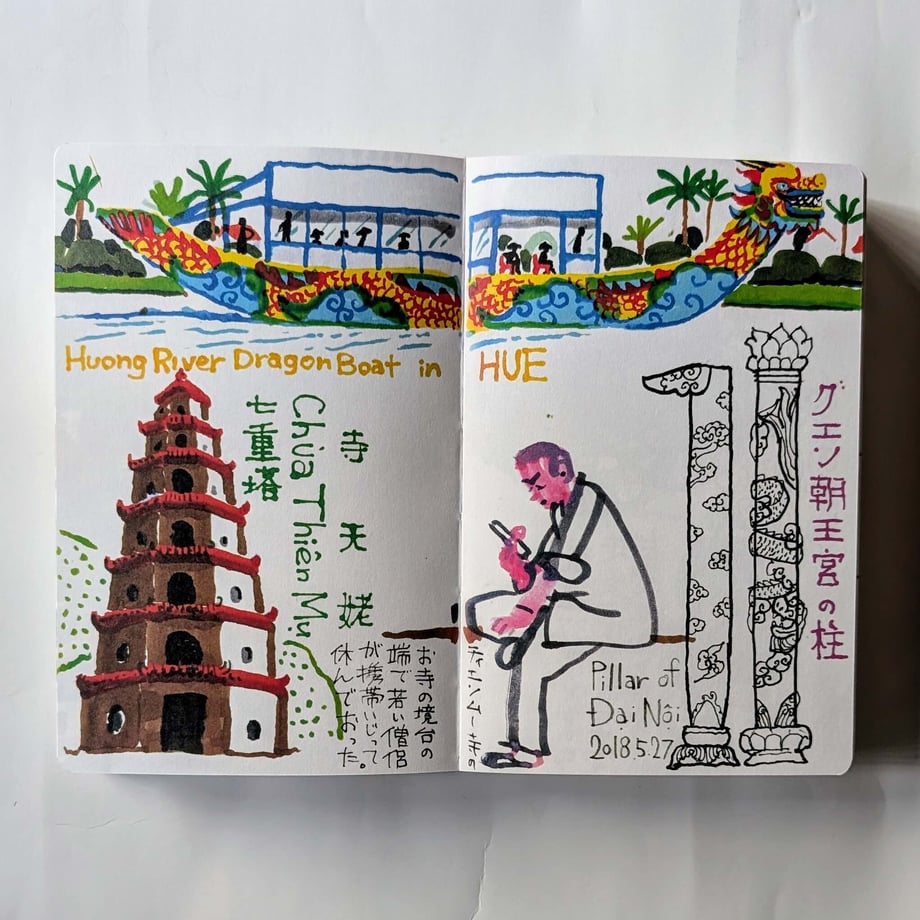 Huong River Dragon Boat in HUE
寺天姥
Chùa Thiên Mụ
七重塔
ティエンムー寺の
お寺の境台の
端で若い僧侶
が携帯いじって
休んでおった。
グエン朝王宮の柱
Pillar of
Đại Nội
2018.5.27